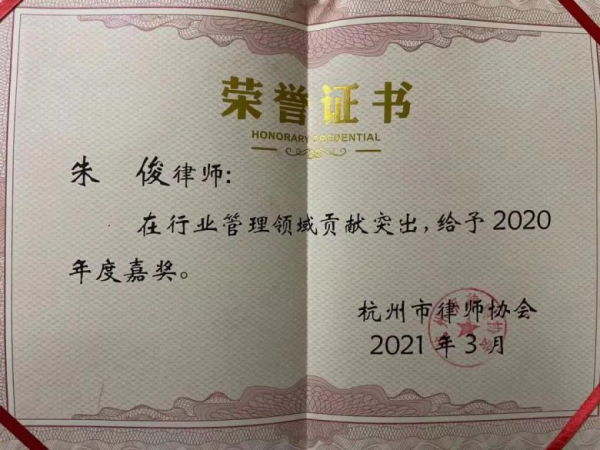 荣誉证书
HONORARY CREDENTIAL
朱 俊律师:
在行业管理领域贡献突出,给予2020
年度嘉奖。
杭州市律师协会
2021年3月